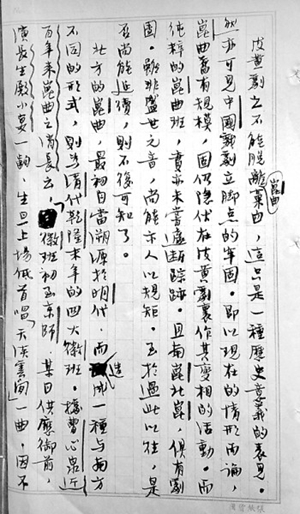 皮黃劇之不能脫離崑曲，這只是一種歷史意義的表見。
然亦可見中國戲劇立脚点的牢固。即以現在的情形而論，
崑曲舊有規模，固仍隱伏在皮黃劇裏作其變相的活動。而
純粹的崑曲班，實亦未嘗虛断踪跡。且南崑北崑，俱有劇
團。雖非盛世元音，尚能示人以規矩。至於過此以往，是
否尚能延價，則不復可知了。
北方的崑曲，最初自當溯源於明代，而造成一種与南方
不同的形式，則為清代乾隆末年的四大徽班。據曹心泉近
百年來崑曲之消長云，徽班初至京師，某日供應御前，
演長生殿小宴一齣，生旦上場低首唱「天淡雲閒」一曲，因不